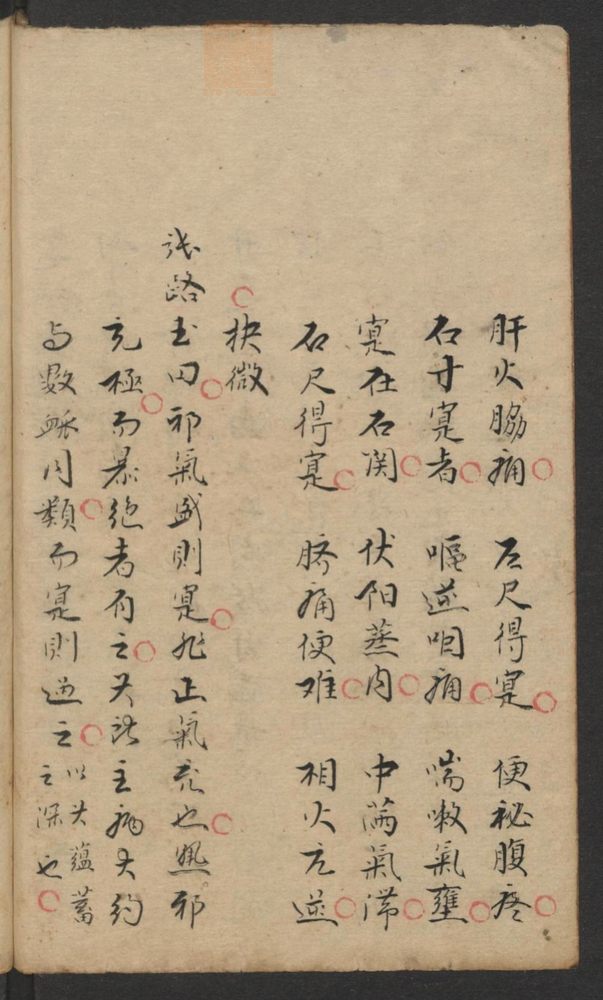 肝火脇痛 左尺得寔 便秘腹疼
右寸寔者 嘔逆咽痛 喘嗽氣壅
寔在右関 伏阳蒸内 中满氣滞
右尺得寔 脐痛便难 相火亢逆
抉微
张路玉曰邪氣盛則寔非正氣充也熱邪
亢極而暴絶者有之其所主病大約
与數脉同類而寔則過之以其蘊蓄
之深也